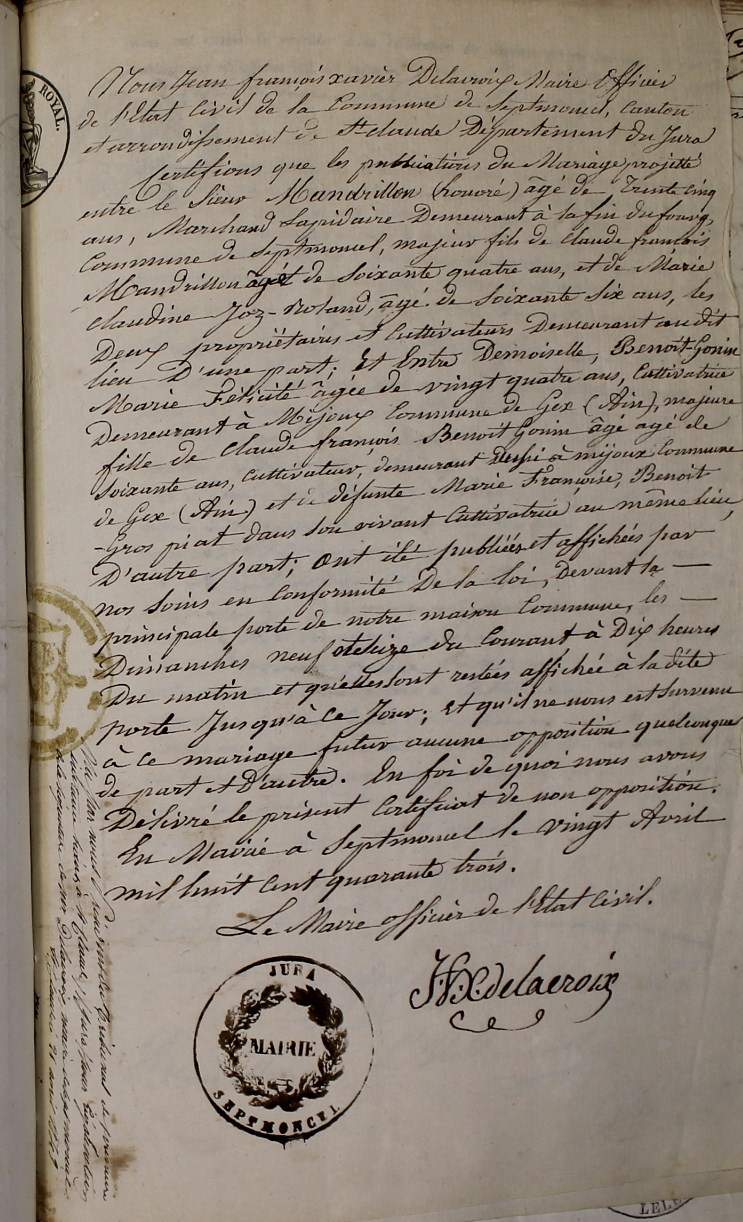 ROYAL.
Nous Jean françois xavier Delacroix Maire Officier
de l'Etat Civil de la Commune de Septmoncel, Canton
et arrondissement de St-claude Département du Jura
Certifions que les publications du Mariage projetté
entre le Sieur Mandrillon (honoré) âgé de Trente cinq
ans, Marchand Lapidaire Demeurant à la fin du fourg,
Commune de Septmoncel, majeur fils de claude françois
Mandrillon âgé de soixante quatre ans, et de Marie
claudine Joz-Roland, âgé de soixante six ans, les
Deux propriétaires et Cultivateurs Demeurant audit
lieu D'une part; Et Entre Demoiselle, Benoit-Gonin
Marie Félicité âgée de vingt quatre ans, Cultivatrice
Demeurant à Mijoux Commune de Gex (Ain), majeure
fille de claude françois Benoit Gonin âgé âgé de
soixante ans, Cultivateur, demeurant à mijoux Commune
de Gex (Ain) et de défunte Marie Françoise, Benoit
-Gros piat dans son vivant Cultivatrice au même lieu,
D'autre part; ont été publiées et affichées par
nos soins en Conformité De la loi, Devant la —
principale porte de notre maison Commune, les —
Dimanches neuf et seize du Courant à Dix heures
Du matin et qu'elles sont restées affichée à la dite
porte Jusqu'à ce Jour; Et qu'il ne nous est survenu
à ce mariage futur aucune opposition quelconque
de part et D'autre. En foi de quoi nous avons
Délivré le présent Certificat de non opposition.
En Mairie à Septmoncel le vingt Avril
mil huit cent quarante trois.
Le Maire officier de l'Etat Civil.
J.F.X. delacroix
JURA
MAIRIE
SEPTMONCEL
Vu par nous Président du tribunal de première
instance séant à St Claude, pour légalisation
de la signature de Mr Delacroix, maire de Septmoncel
St Claude 21 avril 1843
LELE